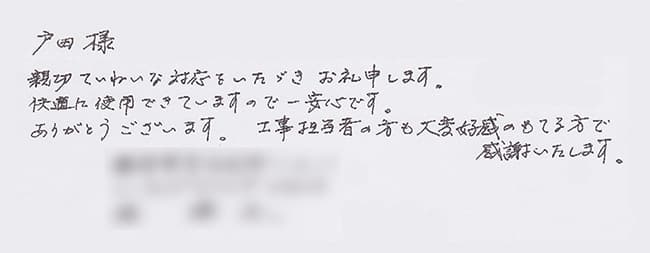 戸田 様
親切ていねいな対応をいただき お礼申します。
快適に使用できていますので一安心です。
ありがとうございます。 工事担当者の方も大変好感のもてる方で
感謝いたします。